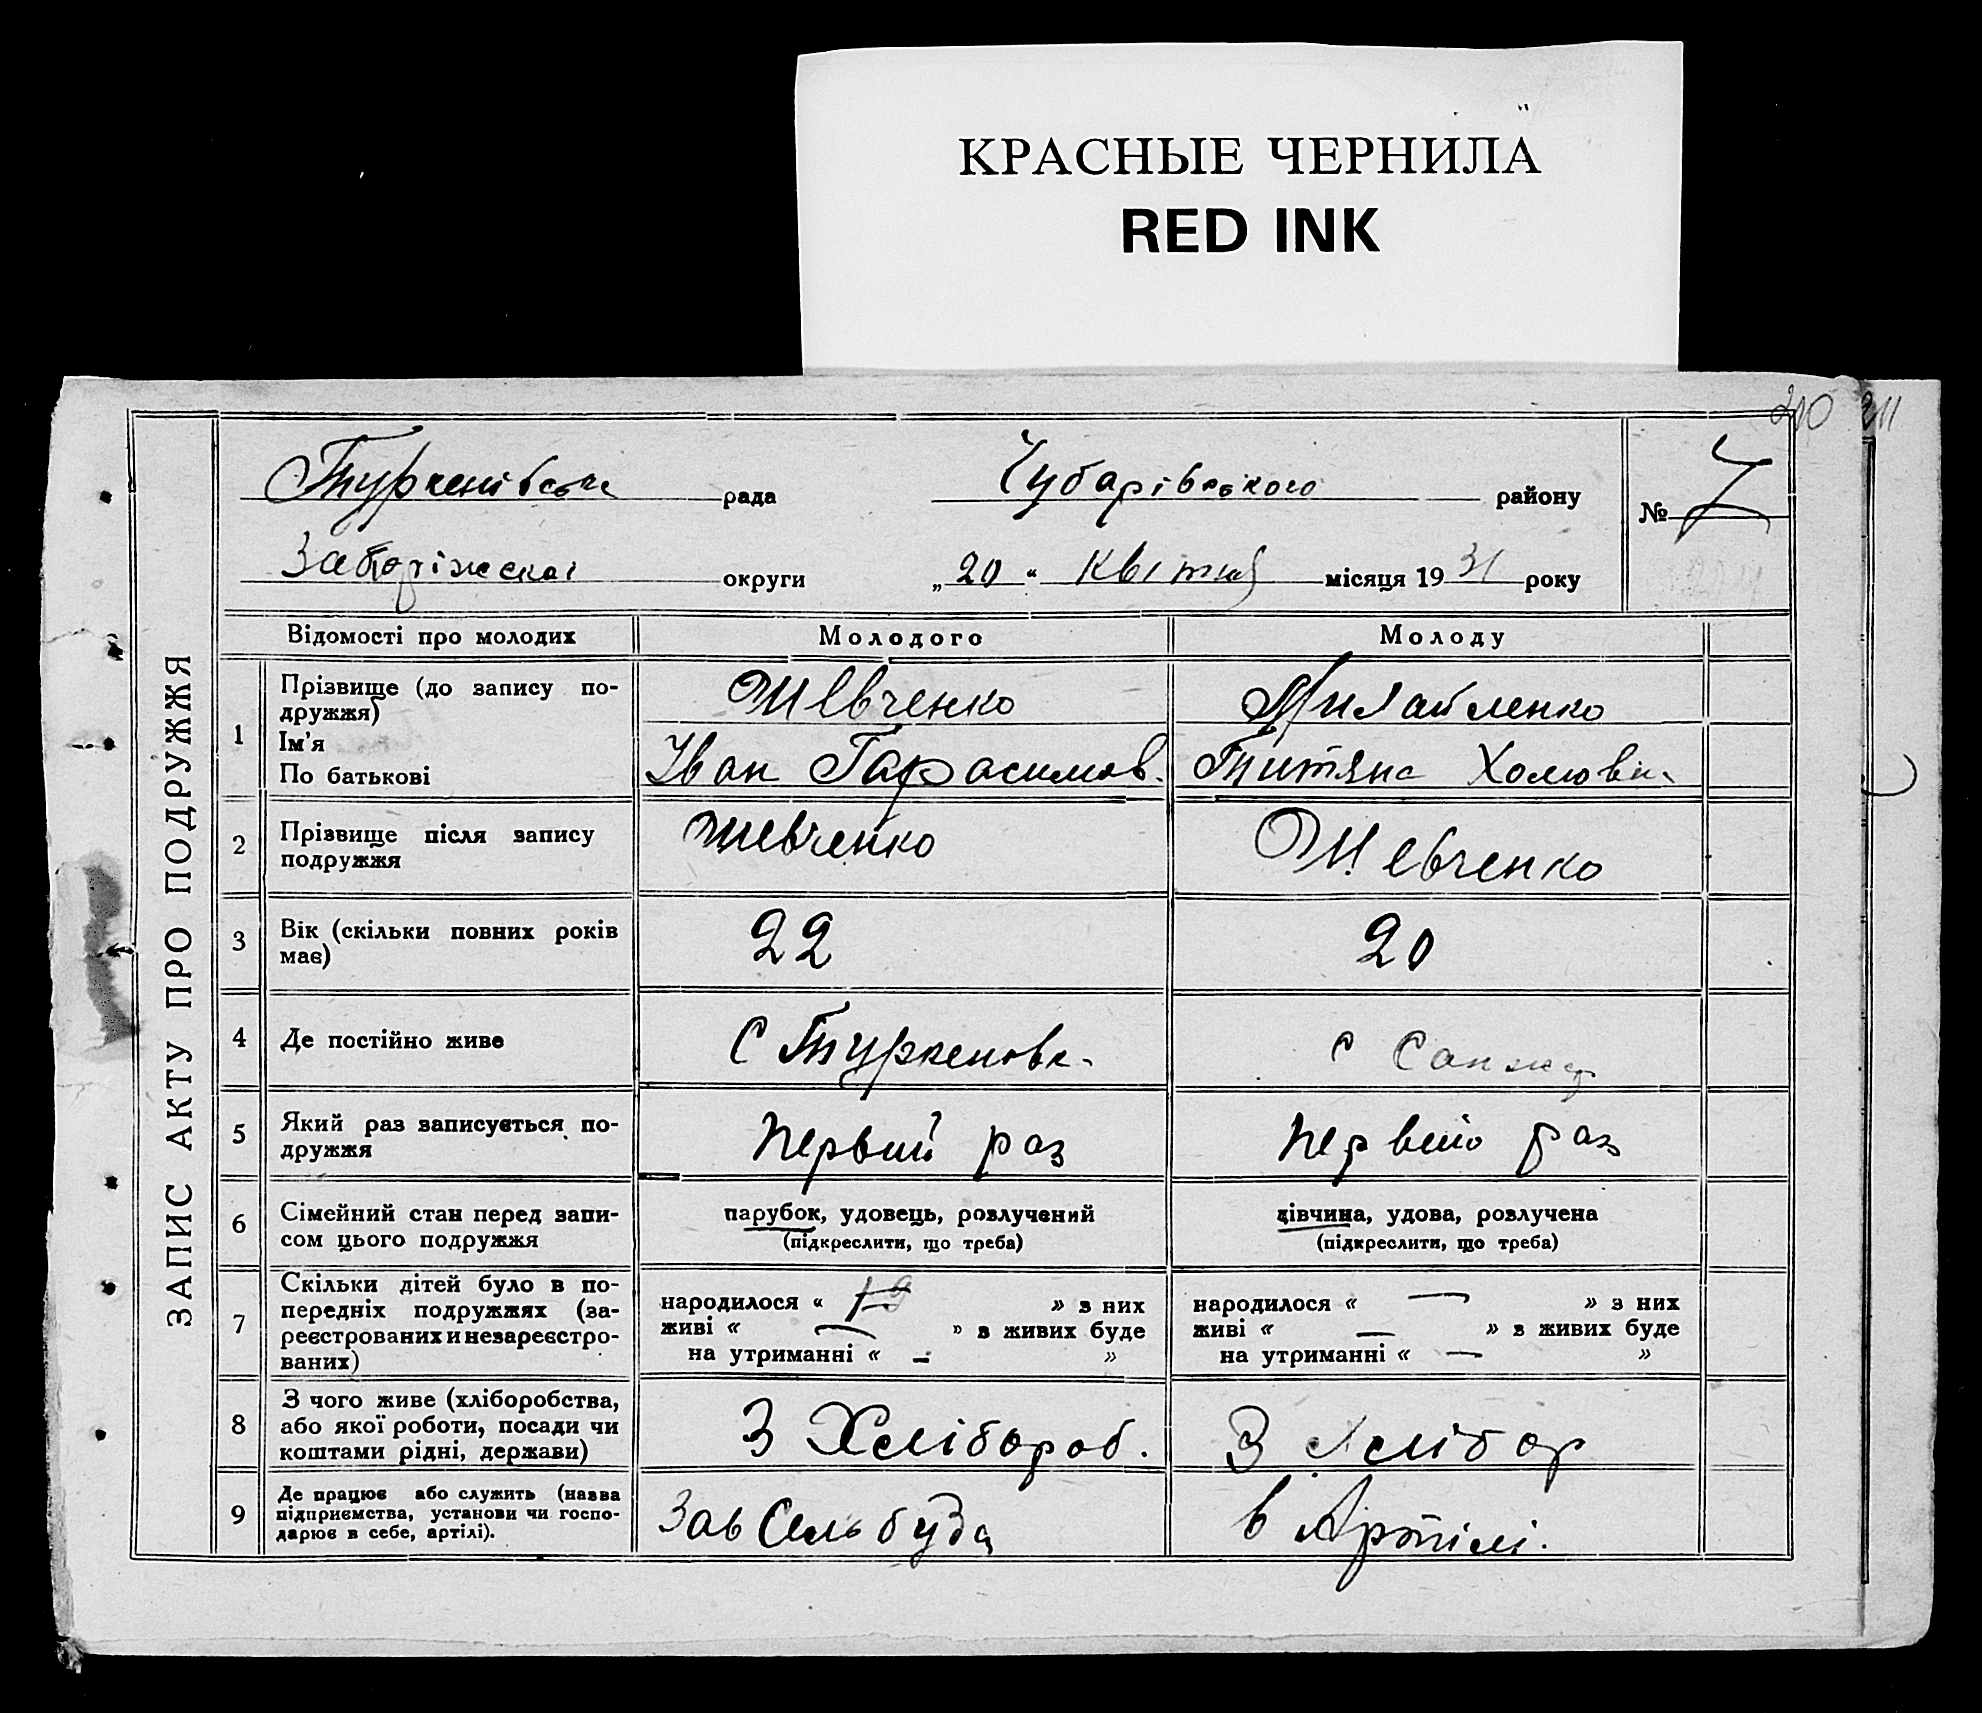 КРАСНЫЕ ЧЕРНИЛА
RED INK
210 211
Туркенівська рада Чубарівського району № 7
округи „20“ Квітня місяця 1931 року
ЗАПИС АКТУ ПРО ПОДРУЖЖЯ
Відомості про молодих Молодого Молоду
1 Прізвище (до запису по-
дружжя) Шевченко
Ім'я
По батькові Іван Гарасимов. Титяна
2 Прізвище після запису
подружжя Шевченко Шевченко
3 Вік (скільки повних років
має) 22 20
4 Де постійно живе С Туркеновк. с
5 Який раз записується по-
дружжя первий раз первий раз
6 Сімейний стан перед запи-
сом цього подружжя парубок, удовець, розлучений дівчина, удова, розлучена
(підкреслити, що треба) (підкреслити, що треба)
7 Скільки дітей було в по-
передніх подружжях (за-
реєстрованих и незареєстро-
ваних) народилося « » з них народилося « — » з них
живі « — » в живих буде живі « — » в живих буде
на утриманні « - » на утриманні « — »
8 З чого живе (хліборобства,
або якої роботи, посади чи
коштами рідні, держави) З Хлібороб. З Хлібор
9 Де працює або служить (назва
підприємства, установи чи госпо-
дарює в себе, артілі). Зав Сельбуда в Артілі.